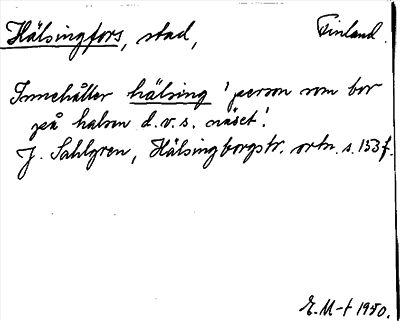 Hälsingfors, stad, Finland.
Innehåller hälsing 'person som bor
på halsen d.v.s. näset'.
J. Sahlgren, Hälsingborgstr. ortn. s. 153 f.
E. M-t 1950.